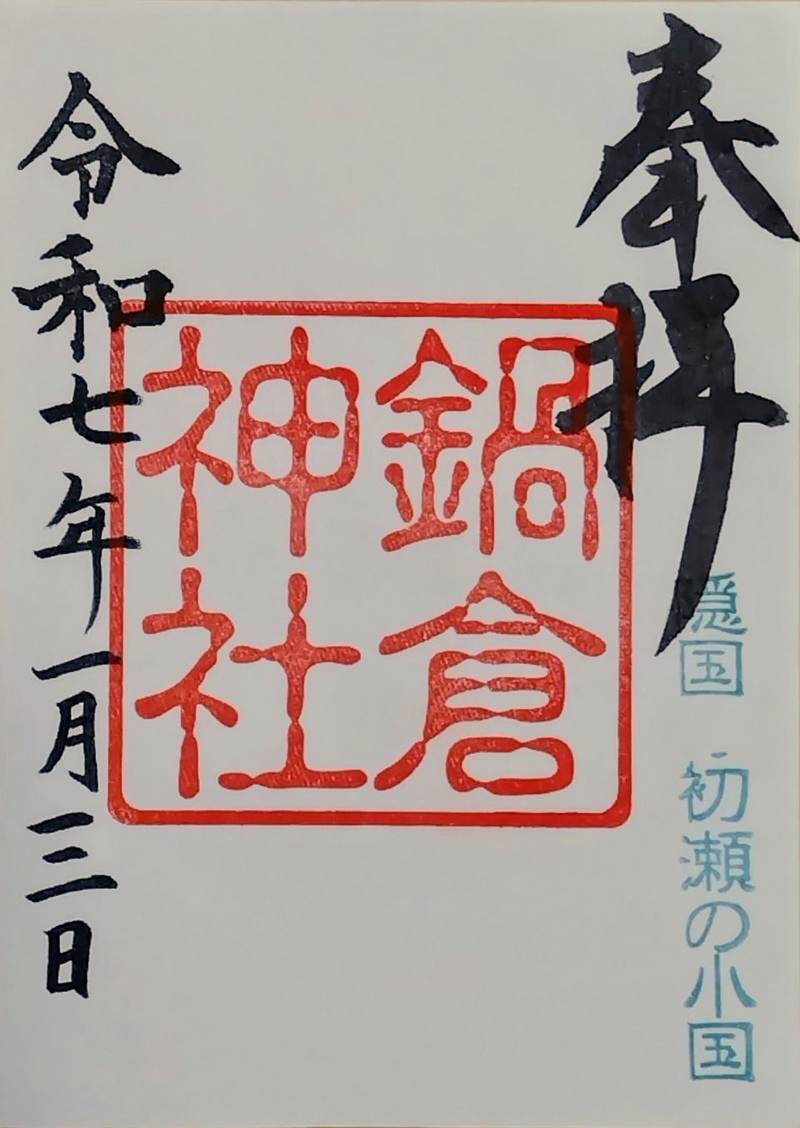 奉拝
隠国 初瀬の小国
鍋倉
神社
令和七年一月三日